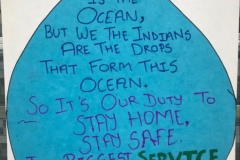 IS THE
OCEAN,
BUT WE THE INDIANS
ARE THE DROPS
THAT FORM THIS
OCEAN.
SO IT'S OUR DUTY TO
STAY HOME,
STAY SAFE.
BIGGEST SERVICE